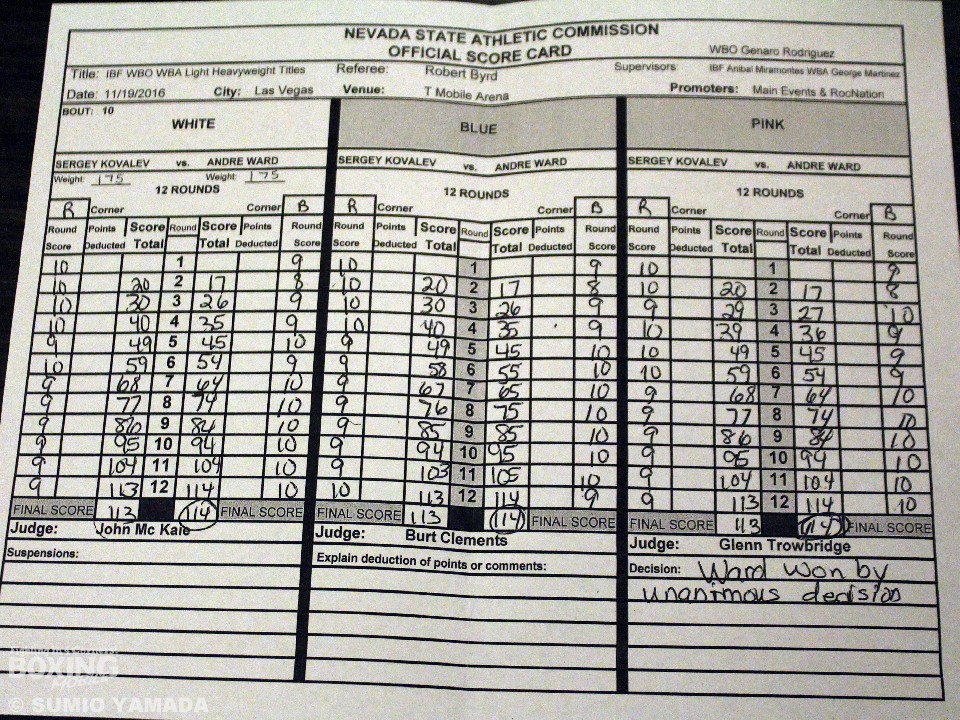 NEVADA STATE ATHLETIC COMMISSION
OFFICIAL SCORE CARD
WBO Genaro Rodriguez
Title: IBF WBO WBA Light Heavyweight Titles Referee: Robert Byrd Supervisors: IBF Anibal Miramontes WBA George Martinez
Date: 11/19/2016 City: Las Vegas Venue: T Mobile Arena Promoters: Main Events & RocNation
BOUT: 10
WHITE BLUE PINK
SERGEY KOVALEV vs. ANDRE WARD SERGEY KOVALEV vs. ANDRE WARD SERGEY KOVALEV vs. ANDRE WARD
Weight: 175 Weight: 175
12 ROUNDS 12 ROUNDS 12 ROUNDS
R Corner Corner B R Corner Corner B R Corner Corner B
Round Points Score Round Score Points Round Round Points Score Round Score Points Round Round Points Score Round Score Points Round
Score Deducted Total Total Deducted Score Score Deducted Total Total Deducted Score Score Deducted Total Total Deducted Score
10 1 9 10 1 9 10 1 9
10 20 2 17 8 10 20 2 17 8 10 20 2 17 8
10 30 3 26 9 10 30 3 26 9 9 29 3 27 10
10 40 4 35 9 10 40 4 35 9 10 39 4 36 9
9 49 5 45 10 9 49 5 45 10 10 49 5 45 9
10 59 6 54 9 9 58 6 55 10 10 59 6 54 9
9 68 7 64 10 9 67 7 65 10 9 68 7 64 10
9 77 8 74 10 9 76 8 75 10 9 77 8 74 10
9 86 9 84 10 9 85 9 85 10 9 86 9 84 10
9 95 10 94 10 9 94 10 95 10 9 95 10 94 10
9 104 11 104 10 9 103 11 105 10 9 104 11 104 10
9 113 12 114 10 10 113 12 114 9 9 113 12 114 10
FINAL SCORE 113 114 FINAL SCORE FINAL SCORE 113 114 FINAL SCORE FINAL SCORE 113 114 FINAL SCORE
Judge: John Mc Kaie Judge: Burt Clements Judge: Glenn Trowbridge
Suspensions: Explain deduction of points or comments: Decision: Ward won by
unanimous decision
BOXING
© SUMIO YAMADA